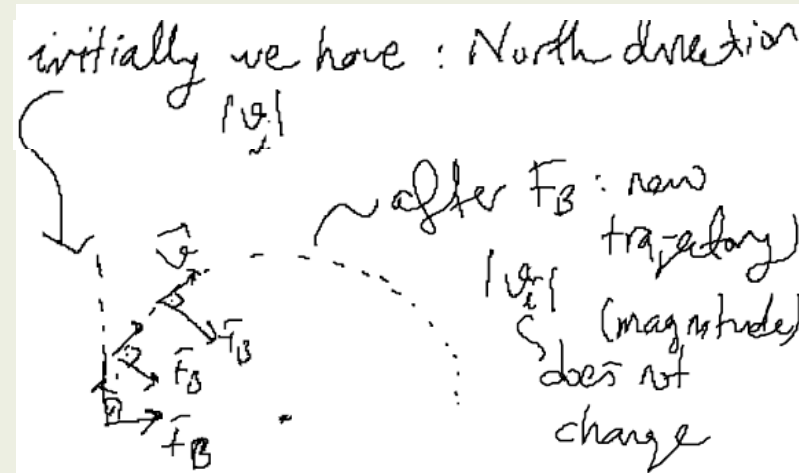 initially we have : North direction
|v⃗ᵢ|
after F_B : new
trajectory
|vᵢ|
(magnitude)
does not
change
v⃗
F_B
F_B
F_B